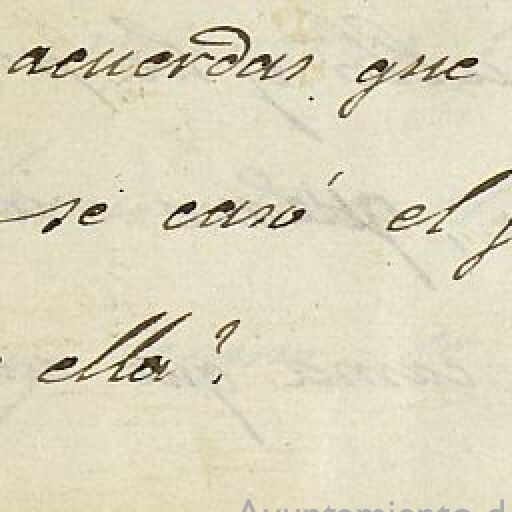 acuerdas que
se casó el
ella?
Ayuntamiento de